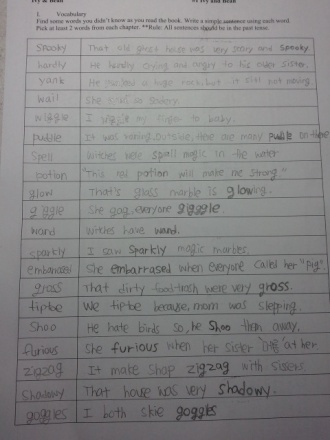 Ivy & Bean
1. Vocabulary
Find some words you didn't know as you read the book. Write a simple sentence using each word.
Pick at least 2 words from each chapter. **Rule: All sentences should be in the past tense.
Spooky That old ghost house was very scary and spooky
hardly He hardly crying and angry to his older sister.
yank
wail She
wiggle I my finger to baby.
puddle It was raining outside, there are many puddle on there
spell witches were spell magic in the water
potion "This red potion will make me strong."
glow That's glass marble is glowing.
giggle She gag, everyone giggle
wand witches have wand.
sparkly I saw sparkly magic marbles.
embarrassed She embarrased when everyone called her "pig"
gross That dirty food-trash were very gross.
tiptoe We tiptoe because, mom was slepping.
Shoo He hate birds so, he shoo them away.
furious She furious when her sister at her
zigzag It make shap zigzag with sissers.
Shadowy That house was very shadowy.
goggles I both skie goggles